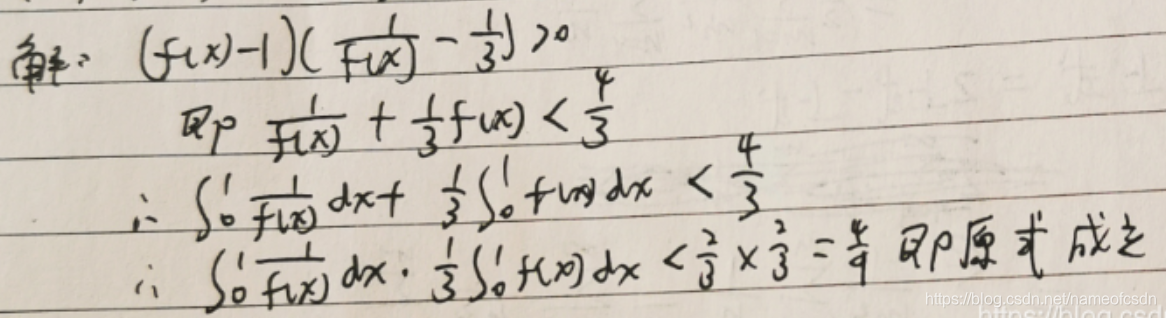 解: (f(x)-1)(1/f(x) - 1/3) > 0
即 1/f(x) + 1/3 f(x) < 4/3
∴ ∫₀¹ 1/f(x) dx + 1/3 ∫₀¹ f(x) dx < 4/3
∴ ∫₀¹ 1/f(x) dx · 1/3 ∫₀¹ f(x) dx < 2/3 × 2/3 = 4/9 即原式成立
https://blog.csdn.net/nameofcsdn
https://blog.csd